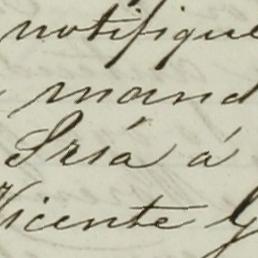 notifique
mand
Sría á
Vicente G